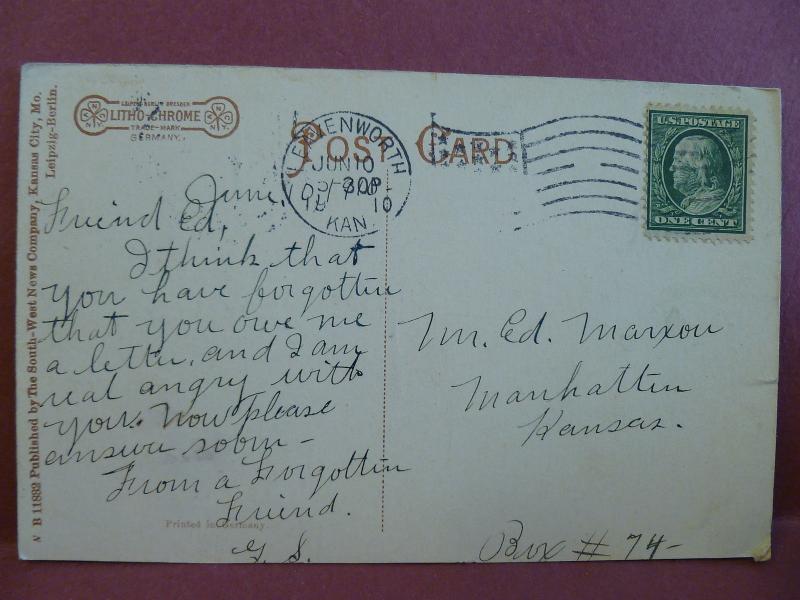 N B 11882 Published by The South-West News Company, Kansas City, Mo.
Leipzig-Berlin.
LEIPZIG BERLIN DRESDEN
LITHO-CHROME
TRADE-MARK
GERMANY.
POST CARD
LEAVENWORTH
JUN 10
KAN.
U.S. POSTAGE
ONE CENT
June
Friend Ed,
I think that
you have forgotten
that you owe me
a letter, and I am
real angry with
you. Now please
answer soon -
From a Forgotten
Friend.
G. S.
Mr. Ed. Marxou
Manhatten
Kansas.
Box # 74-
Printed in Germany.